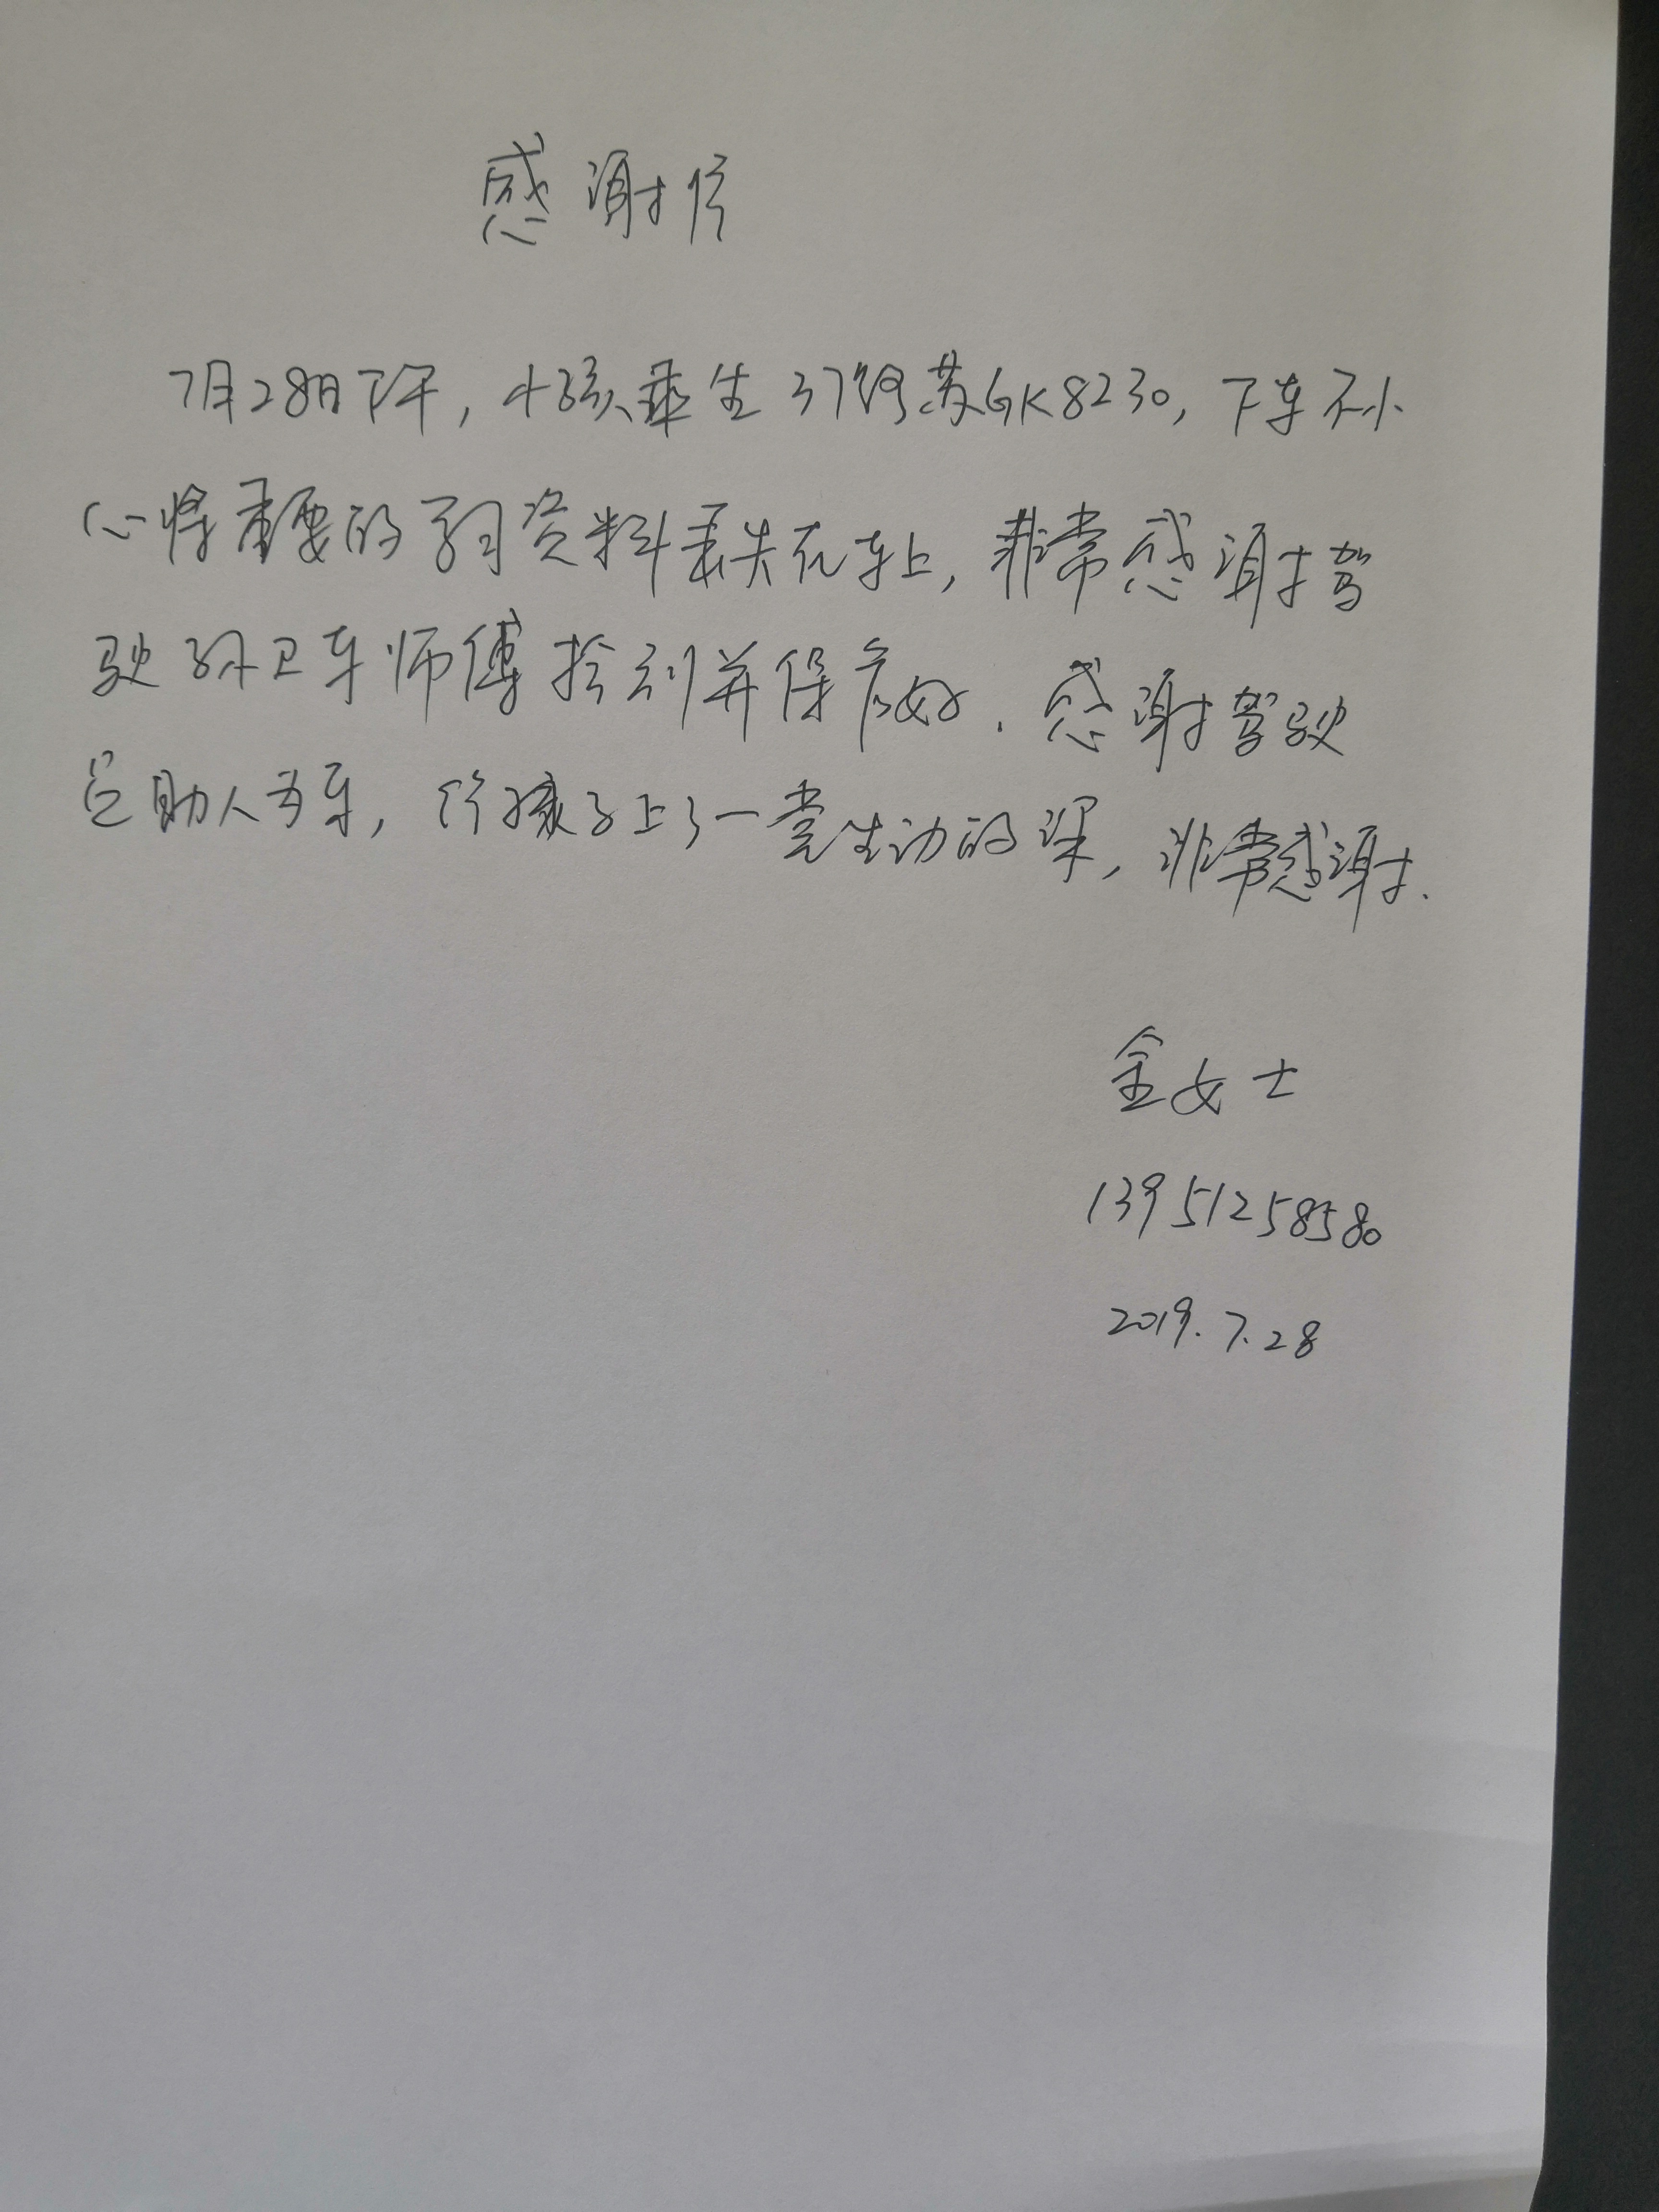 感谢信
7月28日下午,小孩乘坐37路苏GK8230,下车不小
心将重要的学习资料丢失在车上,非常感谢驾
驶孙卫车师傅拾到并保存好.感谢驾驶
员助人为乐,给孩子上了一堂生动的课,非常感谢.
金女士
13951258580
2019.7.28